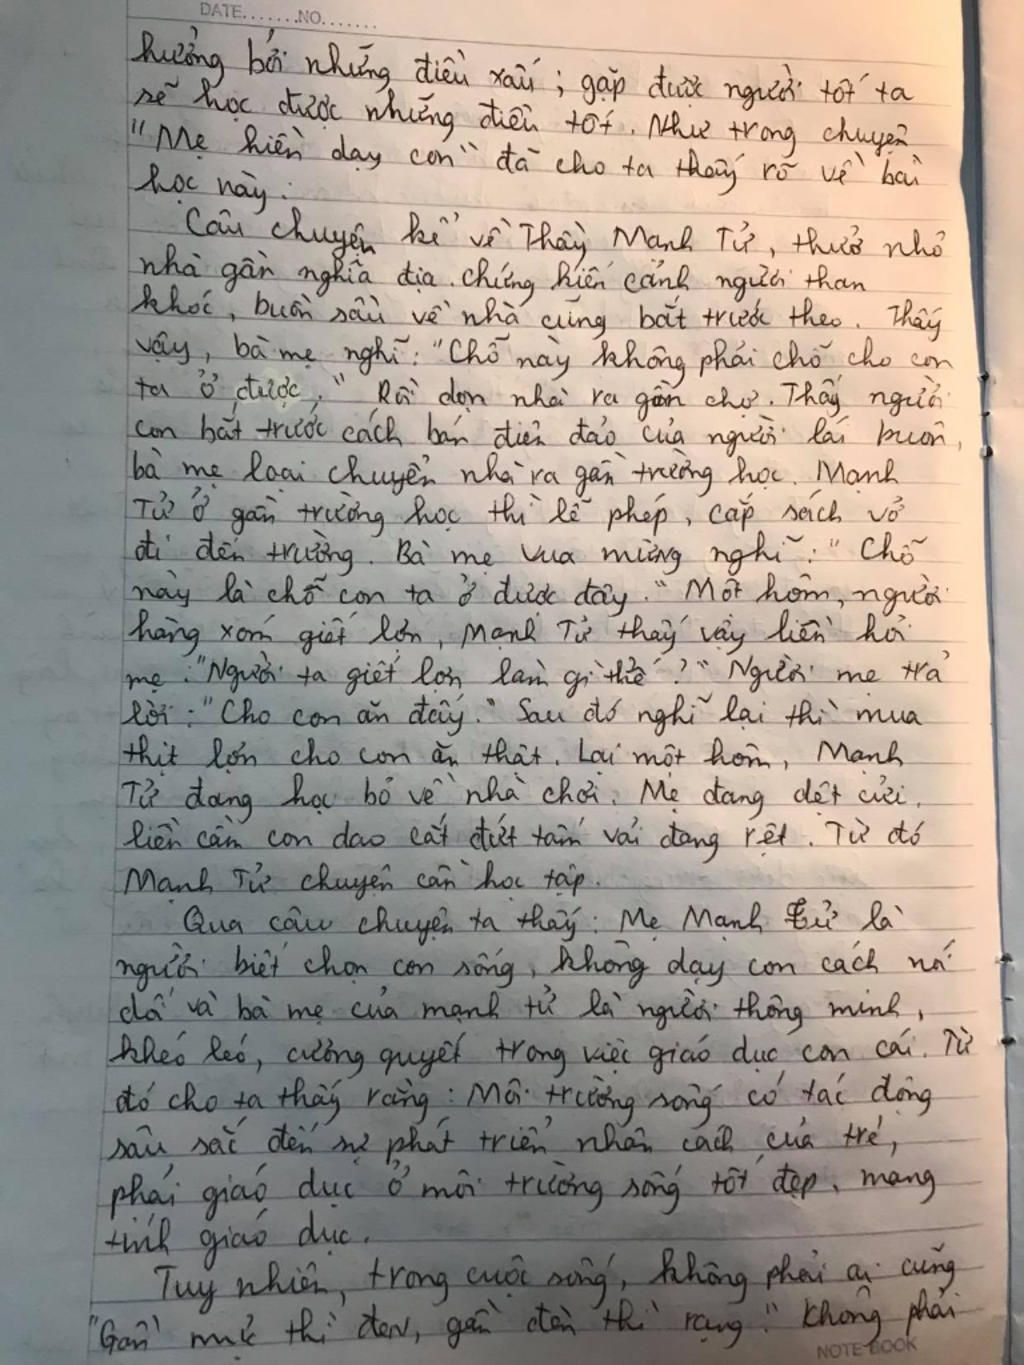 DATE.......NO.......
hưởng bởi những điều xấu; gặp được người tốt ta
sẽ học được những điều tốt. Như trong chuyện
"Mẹ hiền dạy con" đã cho ta thấy rõ về bài
học này.
Câu chuyện kể về Thầy Mạnh Tử, thuở nhỏ
nhà gần nghĩa địa. chứng kiến cảnh người than
khóc, buồn sầu về nhà cũng bắt trước theo. Thấy
vậy, bà mẹ nghĩ: "Chỗ này không phải chỗ cho con
ta ở được." Rồi dọn nhà ra gần chợ. Thấy người
con bắt trước cách bán điên đảo của người lái buôn,
bà mẹ loại chuyển nhà ra gần trường học. Mạnh
Tử ở gần trường học thì lễ phép, cắp sách vở
đi đến trường. Bà mẹ vua mừng nghĩ: "Chỗ
này là chỗ con ta ở được đây." Một hôm, người
hàng xóm giết lợn, Mạnh Tử thấy vậy liền hỏi
mẹ: "Người ta giết lợn làm gì thế?" Người mẹ trả
lời: "Cho con ăn đấy." Sau đó nghĩ lại thì mua
thịt lợn cho con ăn thật. Lại một hôm, Mạnh
Tử đang học bỏ về nhà chơi. Mẹ đang dệt cửi,
liền cầm con dao cắt đứt tấm vải đang rệt. Từ đó
Mạnh Tử chuyên cần học tập.
Qua câu chuyện ta thấy: Mẹ Mạnh Tử là
người biết chọn con sống, không dạy con cách nói
dối và bà mẹ của mạnh tử là người thông minh,
khéo léo, cương quyết trong việc giáo dục con cái. Từ
đó cho ta thấy rằng: Môi trường sống có tác động
sâu sắc đến sự phát triển nhân cách của trẻ,
phải giáo dục ở môi trường sống tốt đẹp, mang
tính giáo dục.
Tuy nhiên, trong cuộc sống, không phải ai cũng
"Gần mực thì đen, gần đèn thì rạng." không phải
NOTE BOOK